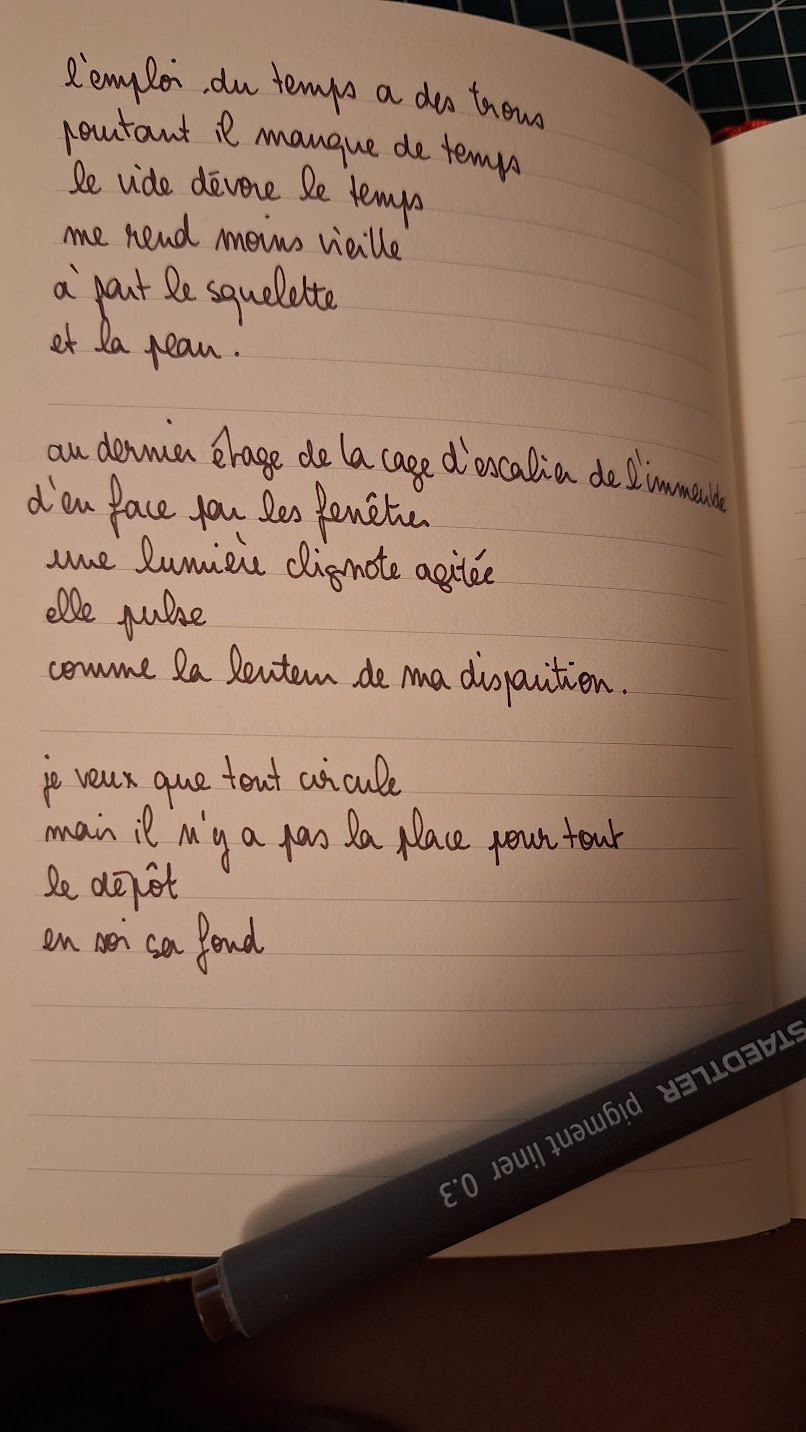 l'emploi du temps a des trous
pourtant il manque de temps
le vide dévore le temps
me rend moins vieille
à part le squelette
et la peau.
au dernier étage de la cage d'escalier de l'immeuble
d'en face par les fenêtres
une lumière clignote agitée
elle pulse
comme la lenteur de ma disparition.
je veux que tout circule
mais il n'y a pas la place pour tout
le dépôt
en soi sa fond
STAEDTLER pigment liner 0.3